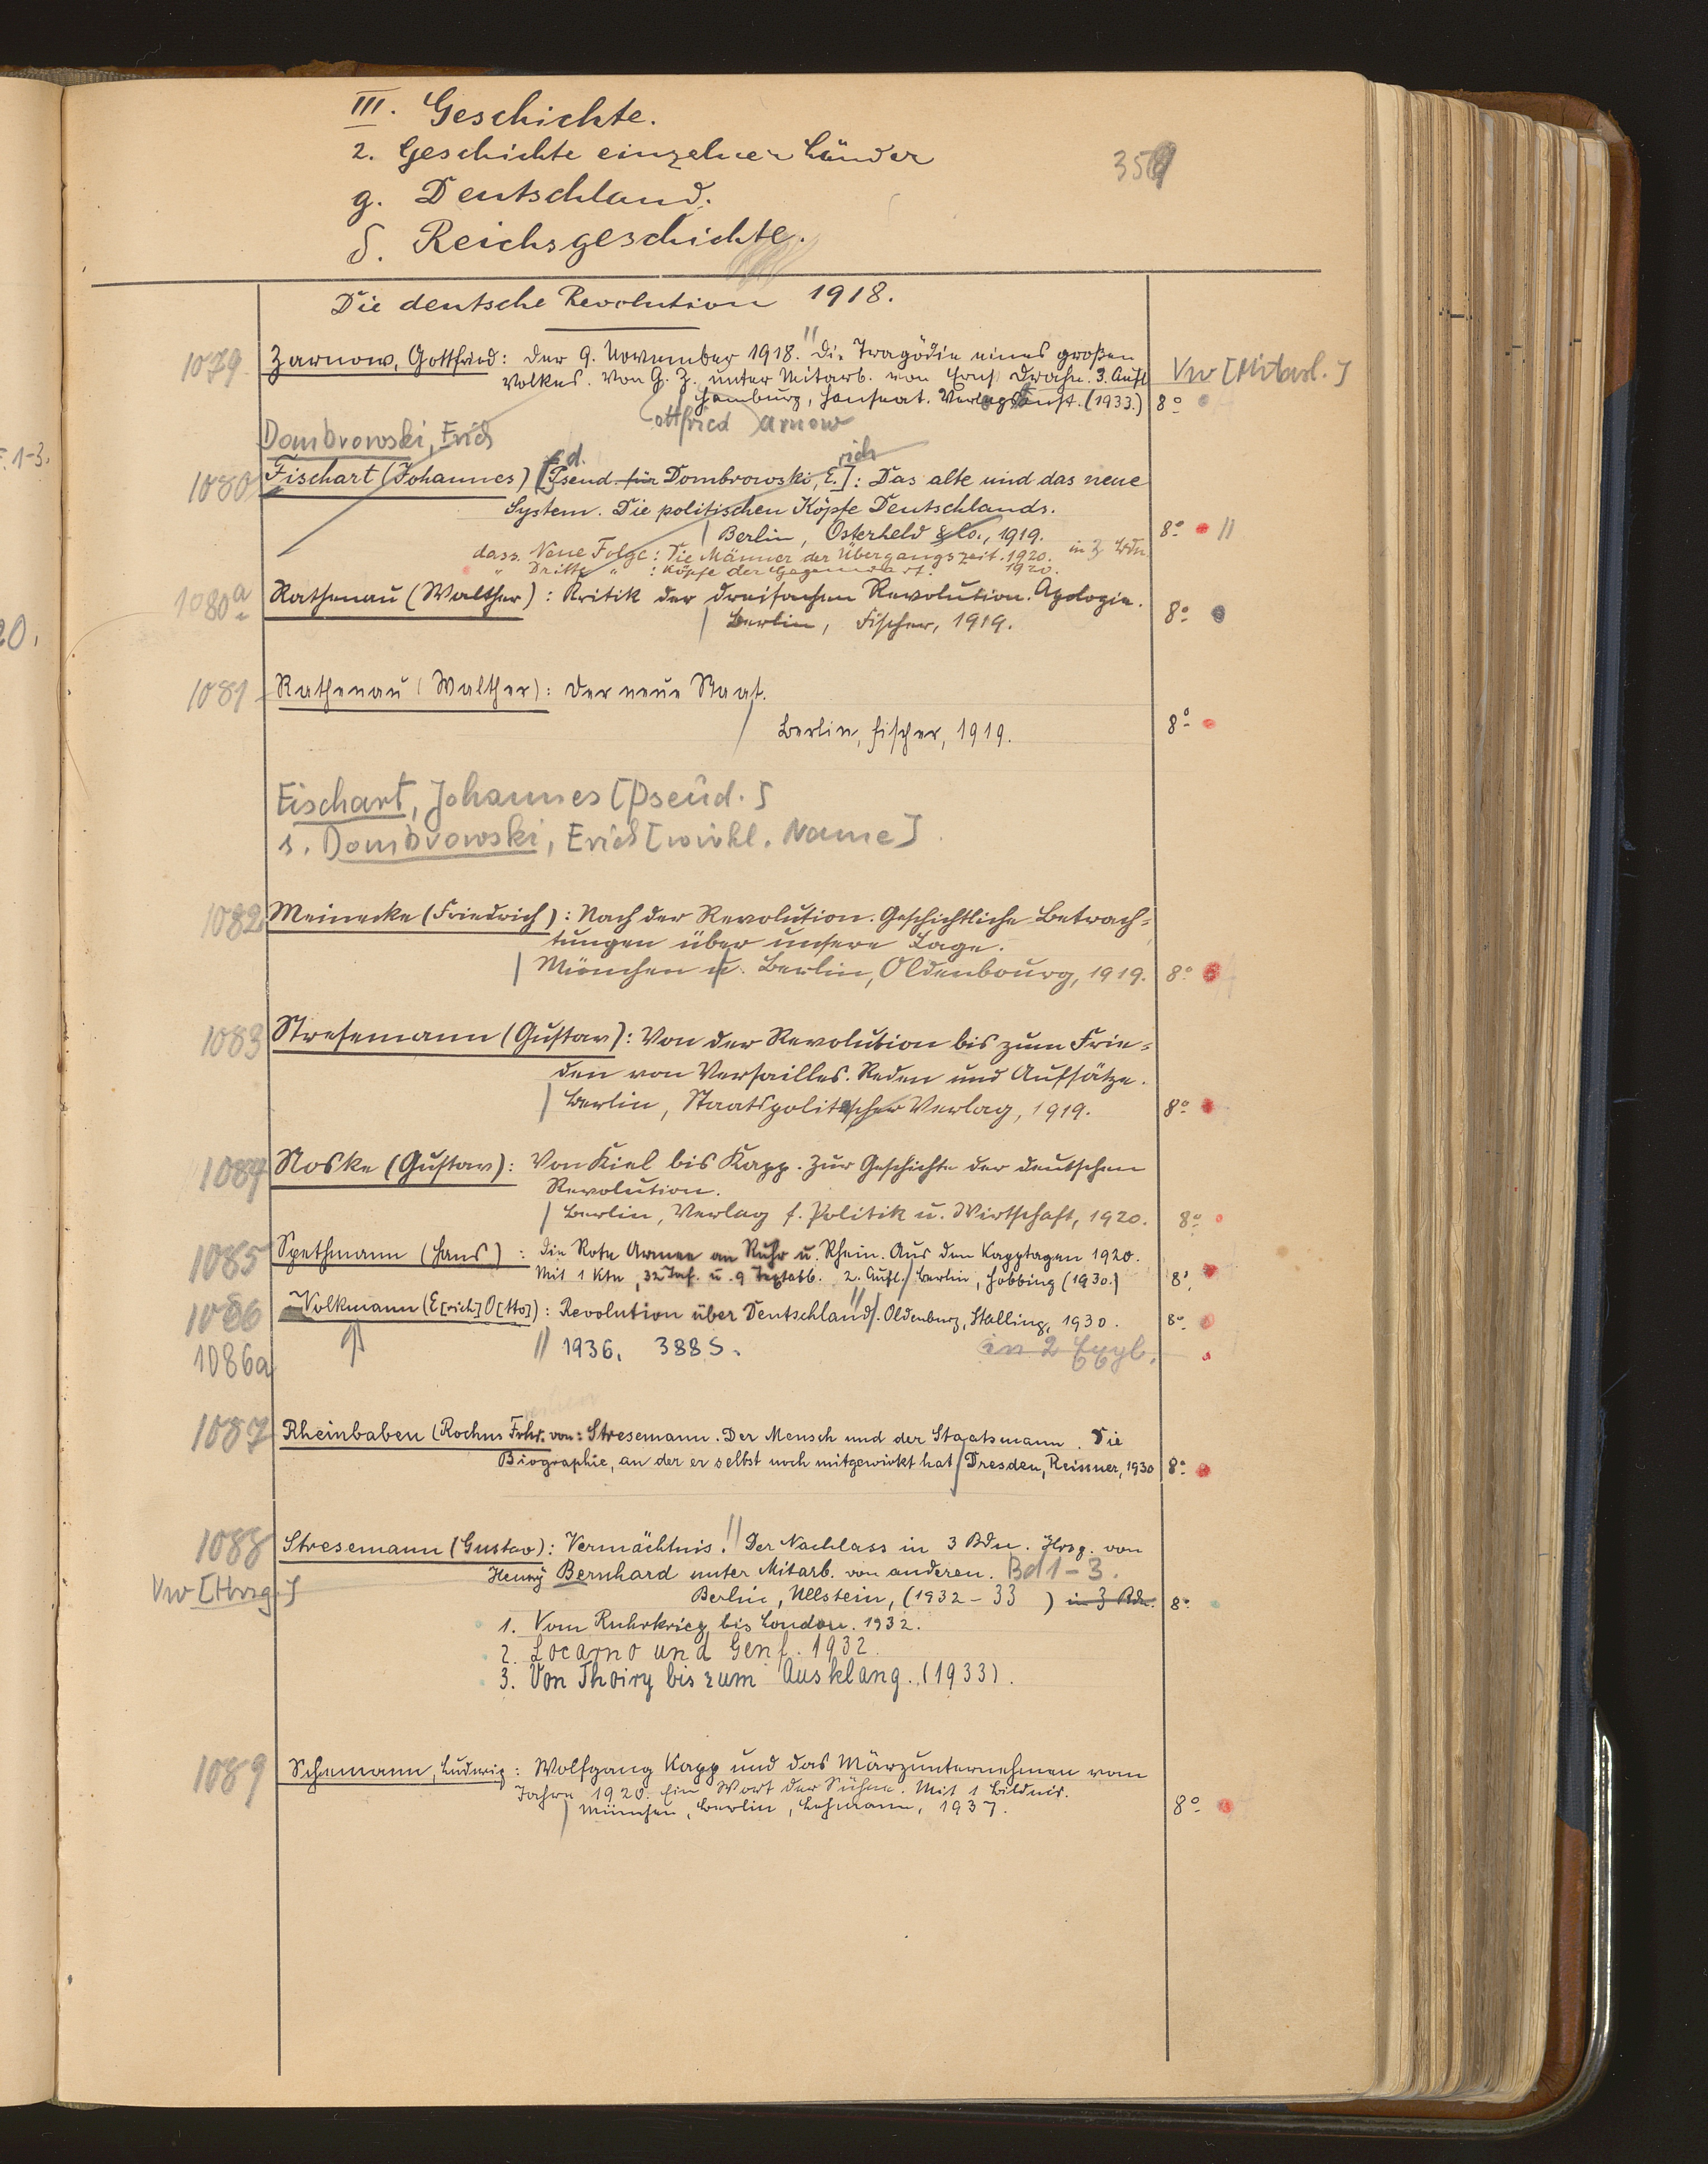 III. Geschichte.
2. Geschichte einzelner Länder
359
g. Deutschland.
δ. Reichsgeschichte.
Die deutsche Revolution 1918.
1079 Zarnow, Gottfried: Der 9. November 1918. Die Tragödie eines großen
Volkes. Von G. Z. unter Mitarb. von Ernst Drahn. 3. Aufl
Vw [Mitarb.]
Hamburg, Hanseat. Verlagsanst. (1933.) 8°
ottfried arnow
Dombrowski, Erich
F. 1-3.
d. rich
1080 Fischart (Johannes) [Pseud. für Dombrowski, E.]: Das alte und das neue
System. Die politischen Köpfe Deutschlands.
Berlin, Osterheld & Co., 1919. 8° ||
in 3 Bdn
dass. Neue Folge: Die Männer der Übergangszeit. 1920.
" Dritte " : Köpfe der Gegenwart. 1920.
1080a Rathenau (Walther): Kritik der dreifachen Revolution. Apologie.
Berlin, Fischer, 1919. 8°
20.
1081 Rathenau (Walther): Der neue Staat.
Berlin, Fischer, 1919. 8°
Fischart, Johannes [Pseud.]
s. Dombrowski, Erich [wirkl. Name]
1082 Meinecke (Friedrich): Nach der Revolution. Geschichtliche Betrach=
tungen über unsere Lage.
München u. Berlin, Oldenbourg, 1919. 8°
1083 Stresemann (Gustav): Von der Revolution bis zum Frie=
den von Versailles. Reden und Aufsätze.
Berlin, Staatspolitischer Verlag, 1919. 8°
1084 Noske (Gustav): Von Kiel bis Kapp. Zur Geschichte der deutschen
Revolution.
Berlin, Verlag f. Politik u. Wirtschaft, 1920. 8°
1085 Spethmann (Hans): Die Rote Armee an Ruhr u. Rhein. Aus den Kapptagen 1920.
Mit 1 Kte, 32 Taf. u. 9 Textabb. 2. Aufl. Berlin, Hobbing (1930.) 8°
1086 Volkmann (E[rich] O[tto]): Revolution über Deutschland. Oldenburg, Stalling, 1930. 8°
1086a || 1936. 388 S. in 2 Expl.
1087 Rheinbaben (Rochus Frhr. von: Stresemann. Der Mensch und der Staatsmann. Die
Biographie, an der er selbst noch mitgewirkt hat Dresden, Reissner, 1930 8°
1088 Stresemann (Gustav): Vermächtnis. Der Nachlass in 3 Bdn. Hrsg. von
Vw [Hrsg.] Henry Bernhard unter Mitarb. von anderen. Bd 1-3.
Berlin, Ullstein, (1932-33) in 3 Bdn. 8°
1. Vom Ruhrkrieg bis London. 1932.
2. Locarno und Genf. 1932.
3. Von Thoiry bis zum Ausklang. (1933).
1089 Schemann, Ludwig: Wolfgang Kapp und das Märzunternehmen vom
Jahre 1920. Ein Wort der Sühne. Mit 1 Bildnis.
München, Berlin, Lehmann, 1937. 8°